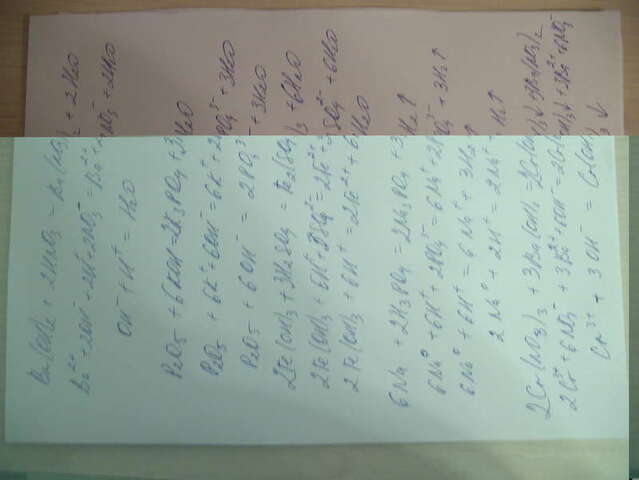 Ba(OH)2 + 2HNO3 = Ba(NO3)2 + 2H2O
Ba2+ + 2OH- + 2H+ + 2NO3- = Ba2+ + 2NO3- + 2H2O
OH- + H+ = H2O
P2O5 + 6KOH = 2K3PO4 + 3H2O
P2O5 + 6K+ + 6OH- = 6K+ + 2PO4 3- + 3H2O
P2O5 + 6OH- = 2PO4 3- + 3H2O
2Fe(OH)3 + 3H2SO4 = Fe2(SO4)3 + 6H2O
2Fe(OH)3 + 6H+ + 3SO4 2- = 2Fe + 3SO4 2- + 6H2O
2Fe(OH)3 + 6H+ = 2Fe + 6H2O
6Na + 2H3PO4 = 2Na3PO4 + 3H2↑
6Na0 + 6H+ + 2PO4 3- = 6Na+ + 2PO4 3- + 3H2↑
6Na0 + 6H+ = 6Na+ + 3H2↑
2Na0 + 2H+ = 2Na+ + H2↑
2Cr(NO3)3 + 3Ba(OH)2 = 2Cr(OH)3↓ + 3Ba(NO3)2
2Cr3+ + 6NO3- + 3Ba2+ + 6OH- = 2Cr(OH)3↓ + 3Ba2+ + 6NO3-
Cr3+ + 3OH- = Cr(OH)3↓